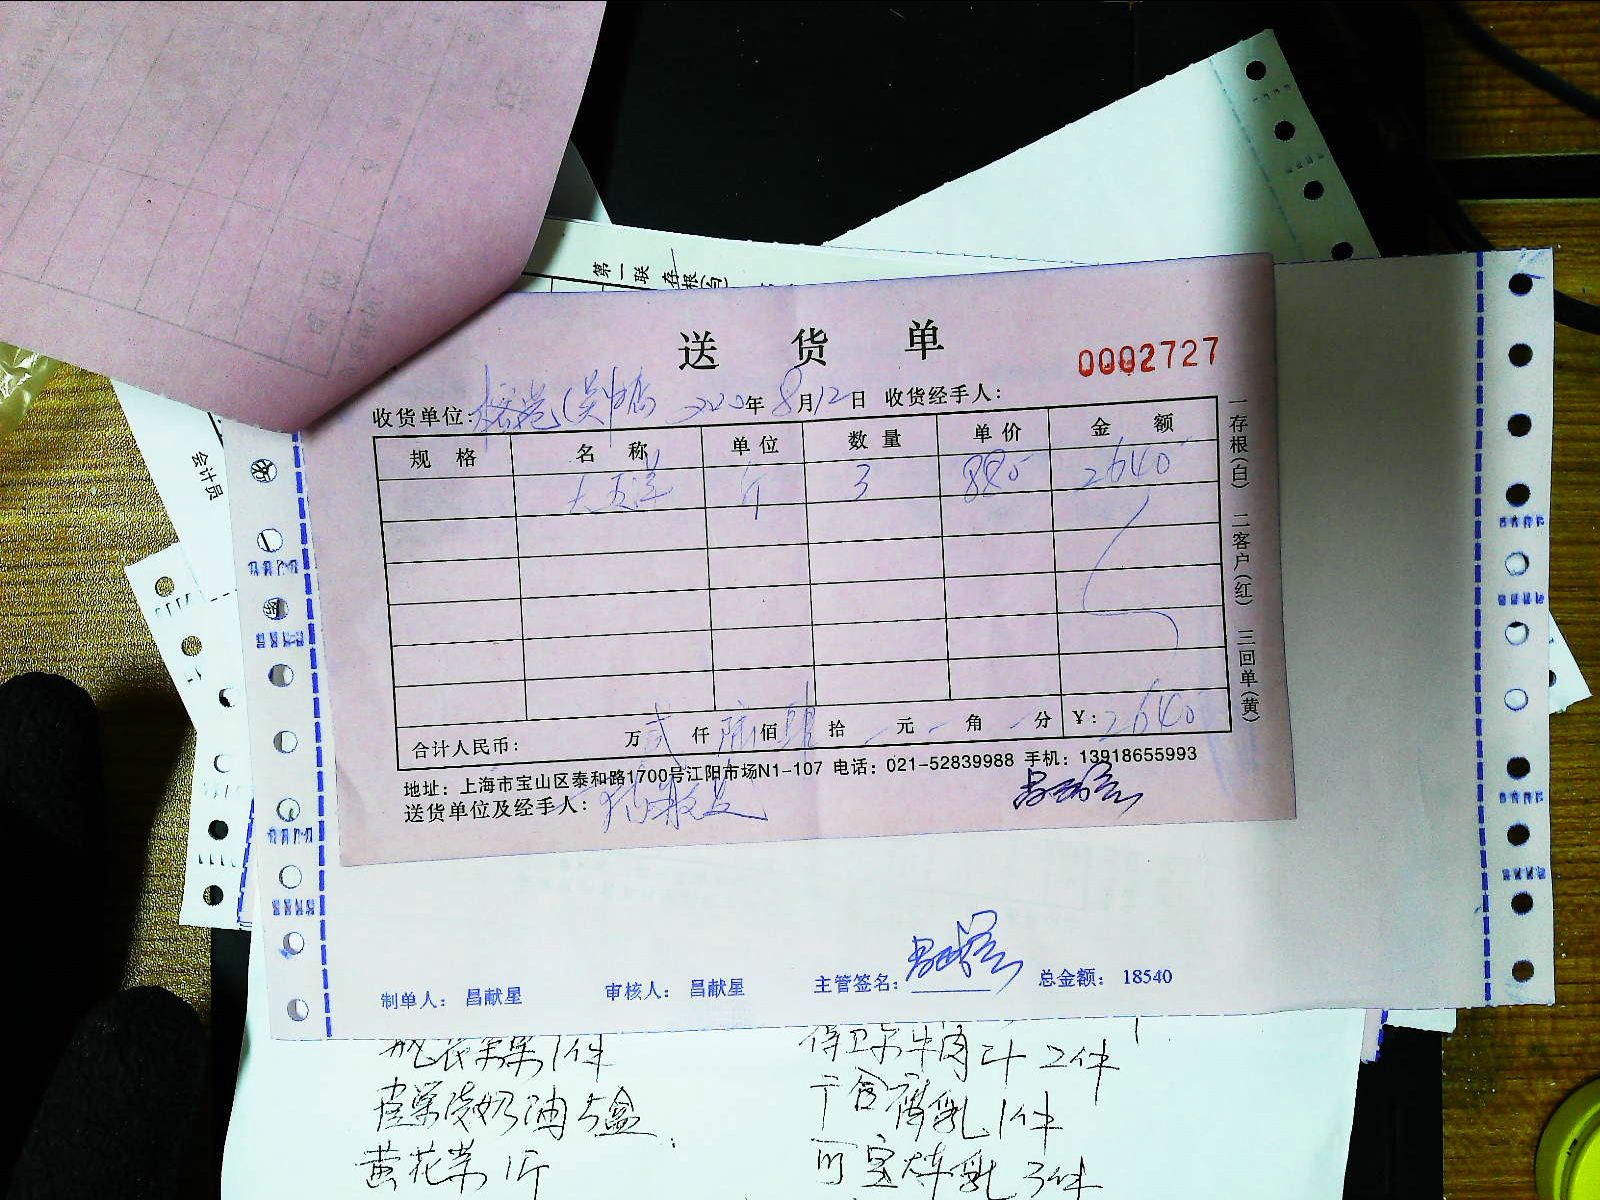 第一联 存根(白
会计员
送货单
0002727
收货单位: 榕港(吴中店 2020年8月12日 收货经手人:
规格 名称 单位 数量 单价 金额
大瑶 斤 3 880 2640
合计人民币: 万贰仟陆佰肆拾元角分 ¥: 2640
地址: 上海市宝山区泰和路1700号江阳市场N1-107 电话: 021-52839988 手机: 13918655993
送货单位及经手人:
一存根(白) 二客户(红) 三回单(黄)
制单人: 昌献星 审核人: 昌献星 主管签名: 总金额: 18540
1件 牛肉 2件
奶油5盒 腐乳1件
黄花菜1斤 炼乳3件